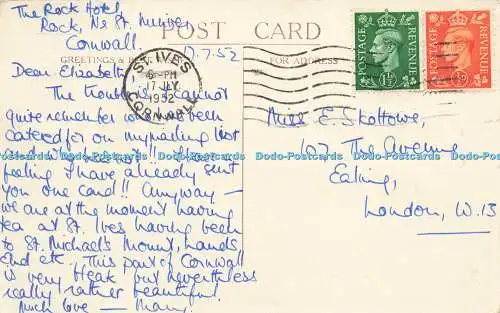 The Rock Hotel,
Rock, Nr St. Minver,
Cornwall.
17.7.52
POST CARD
GREETINGS &
FOR ADDRESS
ST. IVES
6-PM
17 JLY
1952
CORNWALL
POSTAGE REVENUE
POSTAGE REVENUE
Dear Elizabeth
The trouble is I cannot
quite remember who I've been
catered for on my list
and who hasn't I have a
feeling I have already sent
you one card!! Anyway —
we are at the moment having
tea at St. Ives having been
to St. Michael's Mount, Lands
End etc. This part of Cornwall
is very bleak but nevertheless
really rather beautiful.
Much love — Mary.
Miss E. Skottowe,
107 The Avenue
Ealing,
London, W.13
Dodo-Postcards Dodo-Postcards Dodo-Postcards Dodo-Postcards Dodo-Postcards